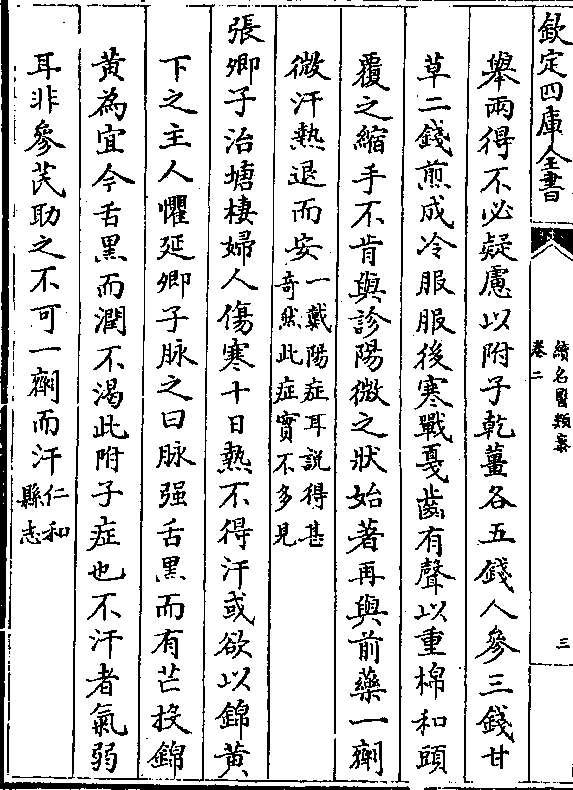 欽定四庫全書
續名醫類案
卷二
三
舉兩得不必疑慮以附子乾薑各五錢人參三錢甘
草二錢煎成冷服服後寒戰戞齒有聲以重棉和頭
覆之縮手不肯與診陽微之狀始著再與前藥一劑
微汗熱退而安一戴陽症耳說得甚
奇然此症實不多見
張卿子治塘棲婦人傷寒十日熱不得汗或欲以錦黃
下之主人懼延卿子脉之曰脉强舌黑而有芒投錦
黃為宜今舌黑而潤不渴此附子症也不汗者氣弱
耳非參芪助之不可一劑而汗仁和
縣志